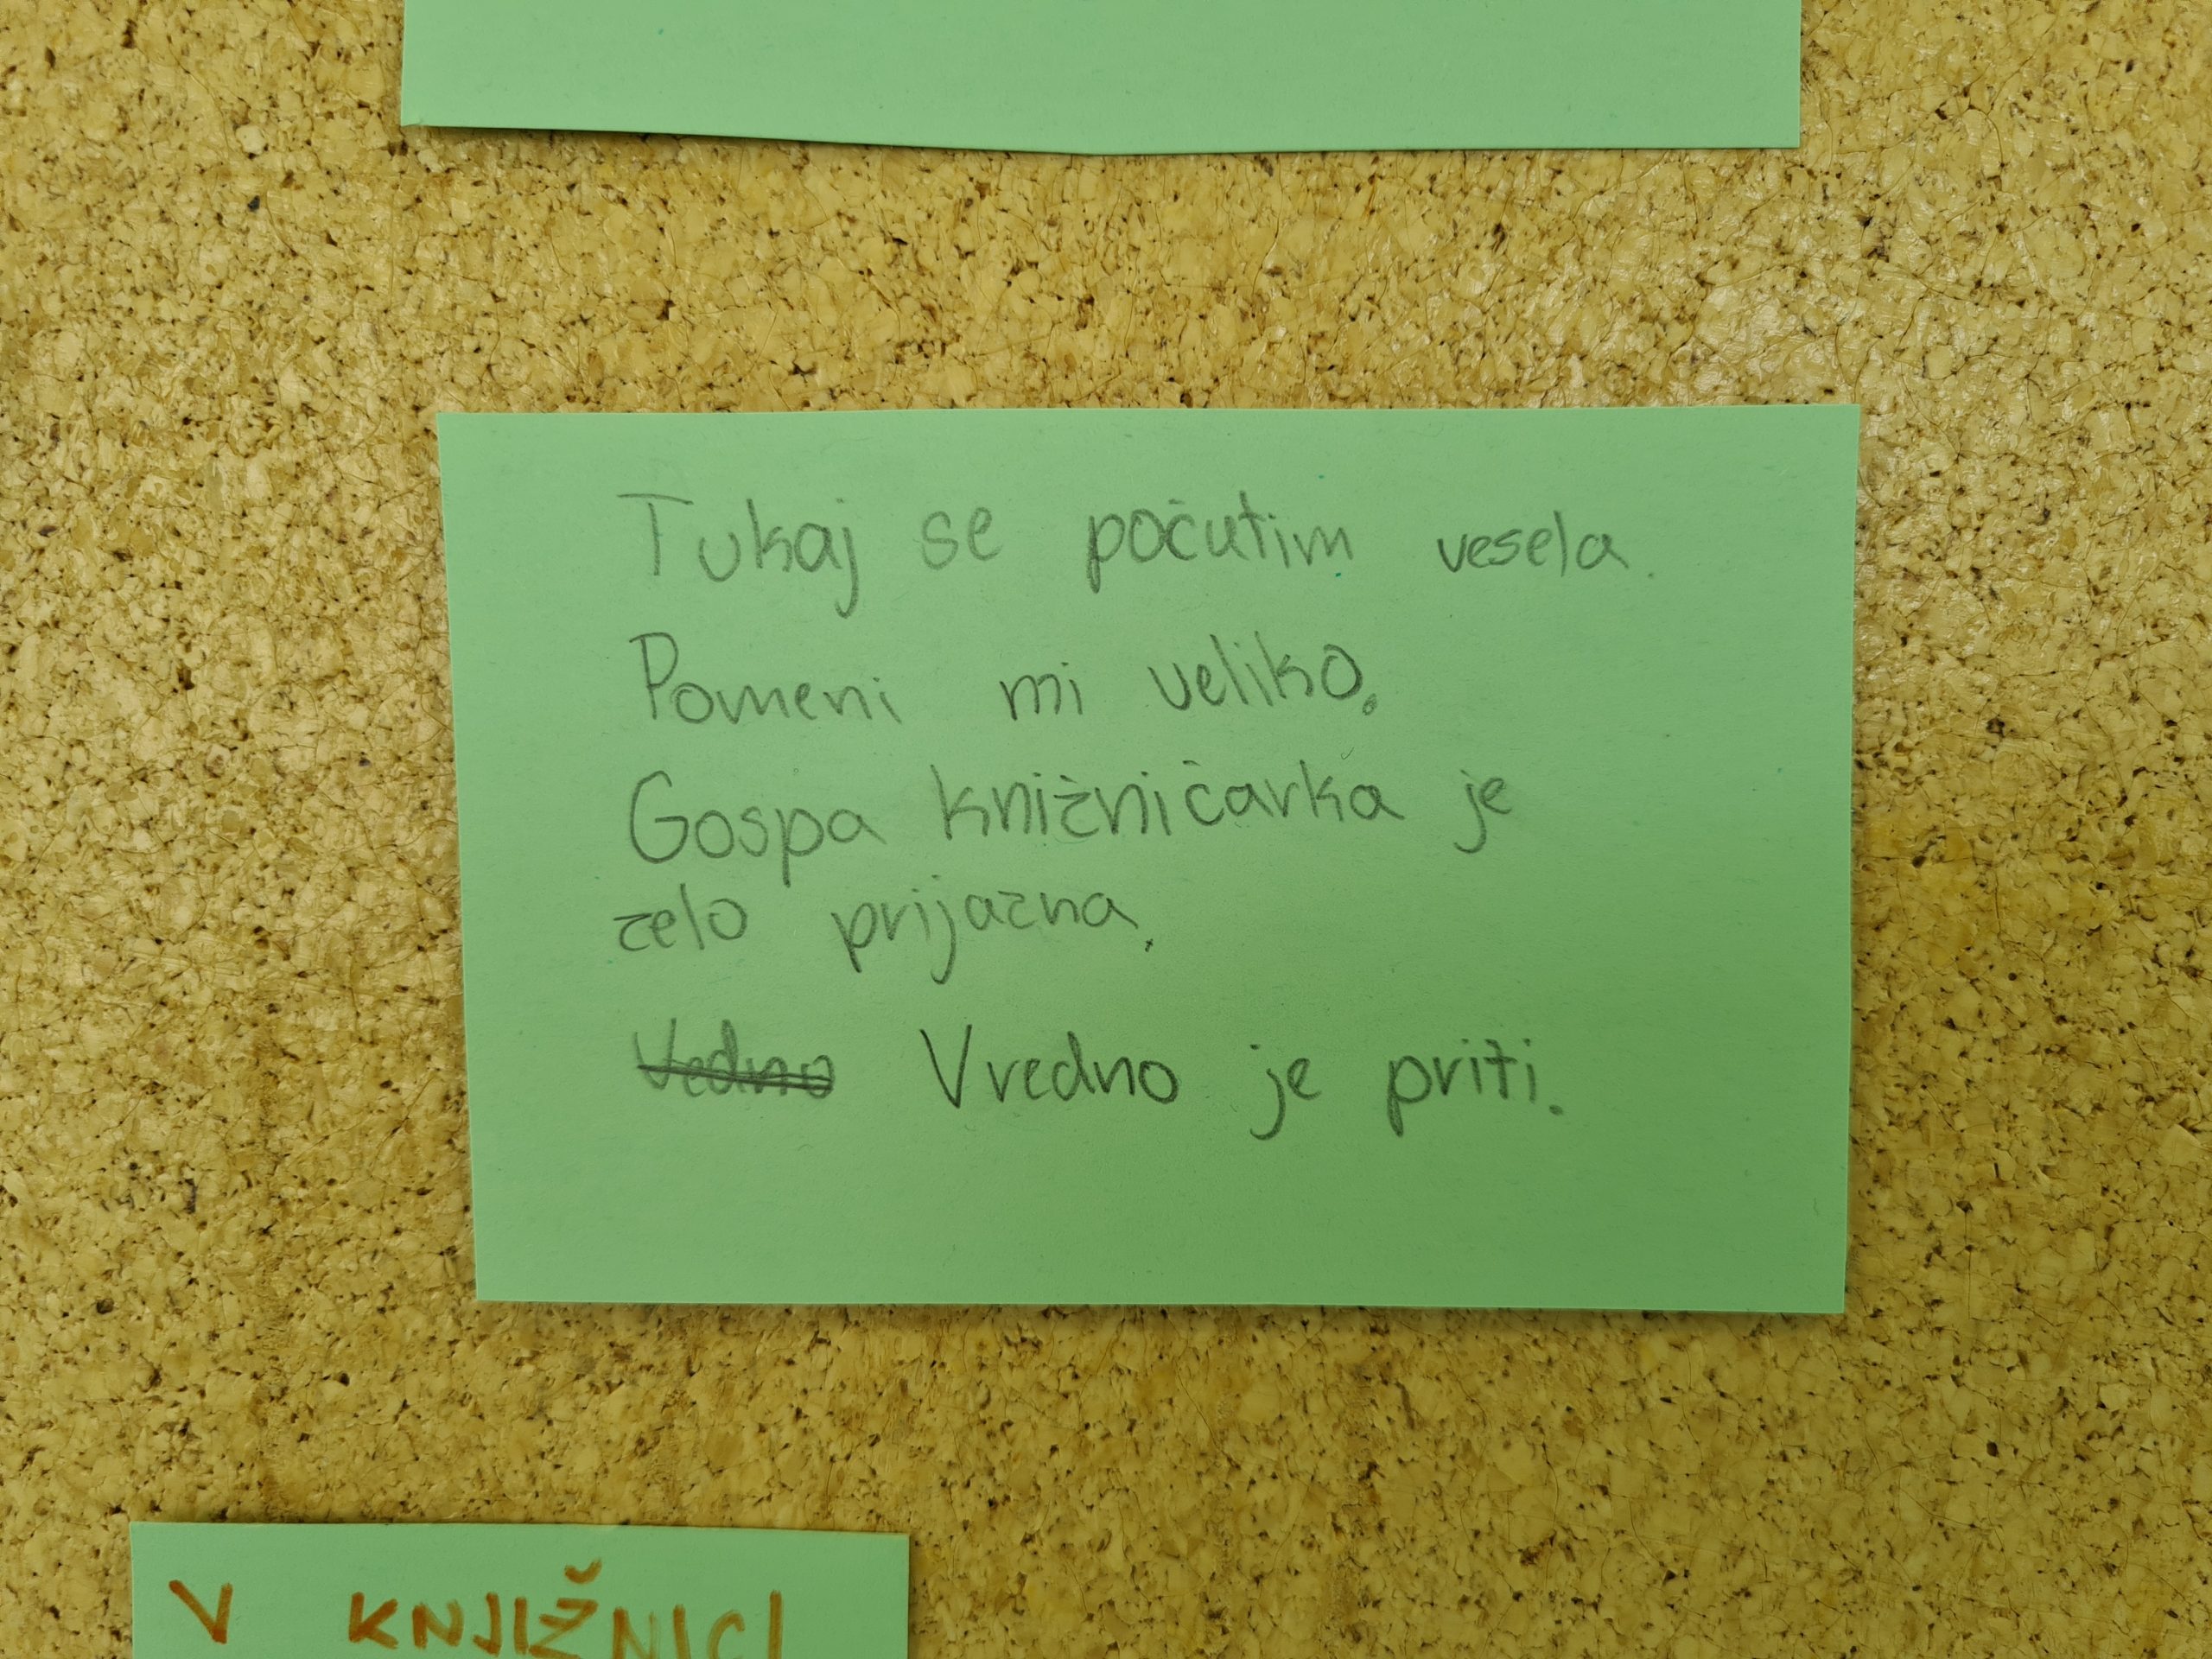 Tukaj se počutim vesela.
Pomeni mi veliko.
Gospa knižničarka je
zelo prijazna.
Vedno Vredno je priti.
V KNJIŽNICI